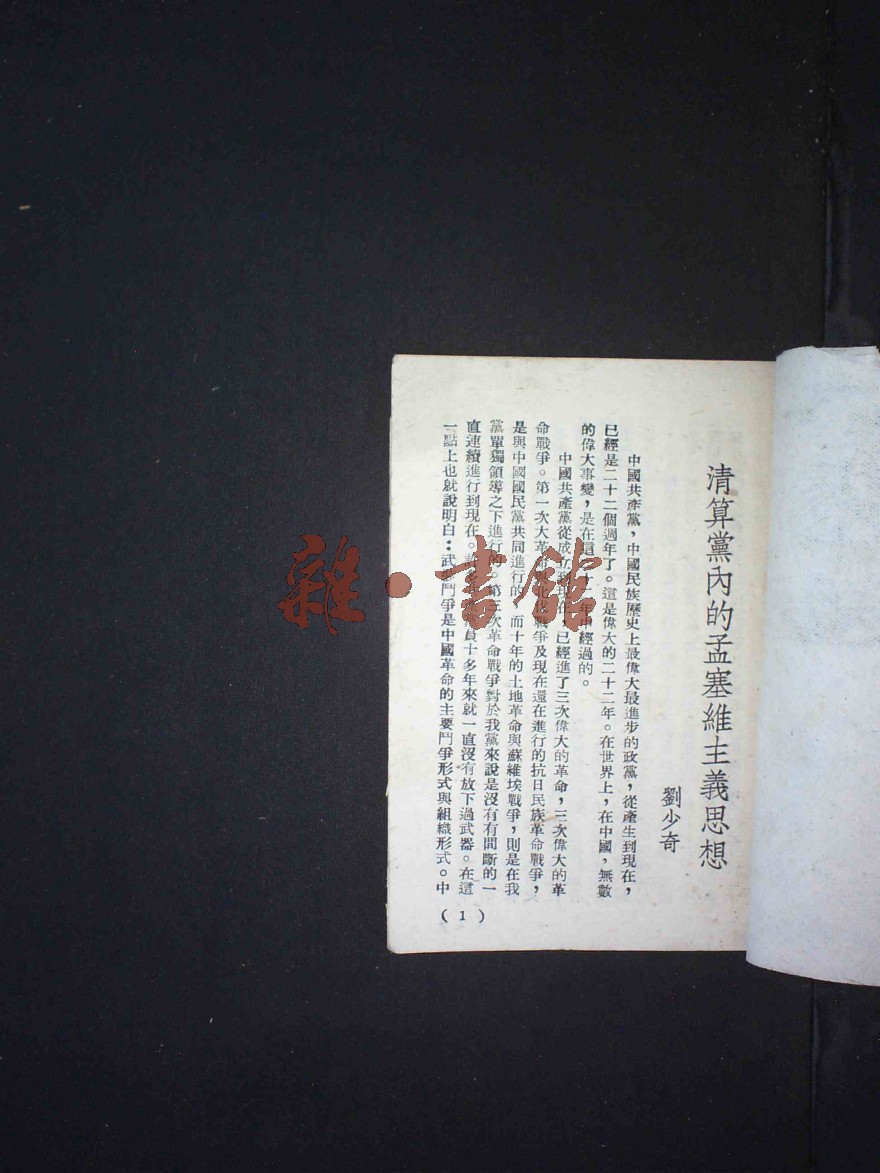 清算黨內的孟塞維主義思想
劉少奇
中國共產黨，中國民族歷史上最偉大最進步的政黨，從產生到現在，
已經是二十二個週年了。這是偉大的二十二年。在世界上，在中國，無數
的偉大事變，是在這二十二年中經過的。
中國共產黨從成立到現在，已經進了三次偉大的革命，三次偉大的革
命戰爭。第一次大革命北伐戰爭及現在還在進行的抗日民族革命戰爭，
是與中國國民黨共同進行的，而十年的土地革命與蘇維埃戰爭，則是在我
黨單獨領導之下進行的。第三次革命戰爭對於我黨來說是沒有有間斷的一
直連續進行到現在。員十多年來就一直沒有放下過武器。在這
一點上也就說明白：武裝鬥爭是中國革命的主要鬥爭形式與組織形式。中
（1）
雜·書館